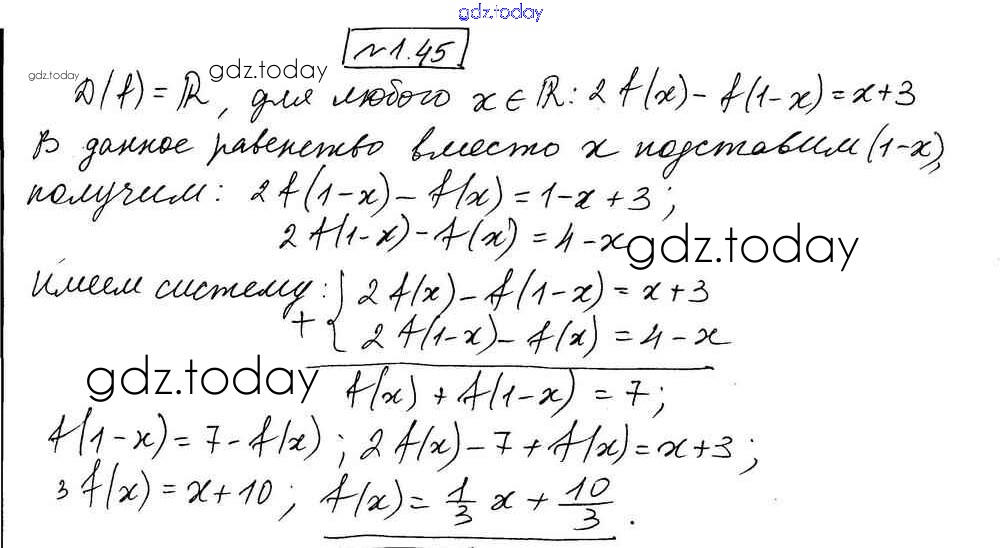 gdz.today
№1.45
gdz.today gdz.today
D(f) = ℝ, для любого x ∈ ℝ: 2f(x) - f(1-x) = x+3
В данное равенство вместо x подставим (1-x),
получим: 2f(1-x) - f(x) = 1-x+3;
2f(1-x) - f(x) = 4-x
gdz.today
Имеем систему: { 2f(x) - f(1-x) = x+3
+ 2f(1-x) - f(x) = 4-x
gdz.today
f(x) + f(1-x) = 7;
f(1-x) = 7 - f(x); 2f(x) - 7 + f(x) = x+3;
3f(x) = x+10; f(x) = 1/3 x + 10/3.